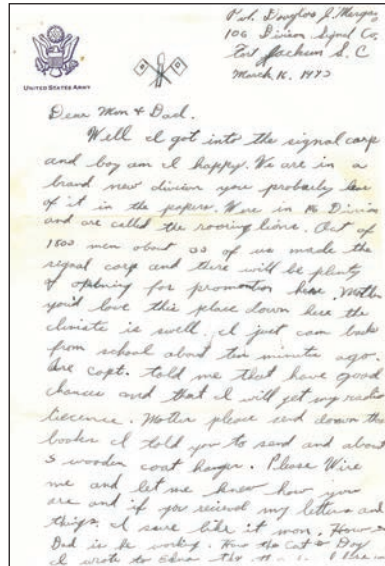 Pvt. Douglas J.
106 Divison Signal Co.
Fort Jackson S.C
March 16. 1943
UNITED STATES ARMY
Dear Mom & Dad.
Well I got into the signal corp
and boy am I happy. We are in a
brand new divison you probarly
of it in the papers. Were in 106 Divison
and are called the roaring lions. Out of
1500 men about of us made the
signal corp and there will be plenty
of opening for promontion here. Mother
you'd love this place down here the
climate is swell. I just com back
from school about ten minutes ago.
capt. told me that have good
chances and that I will get my radio
liecence. Mother please send down the
books I told you to send and about
5 wooden coat hanger. Please Wire
me and let me know how you
are and if you recieved my letters and
things. I sure like it mom. How is
Dad is he working. How the Cat & Dog
I wrote to